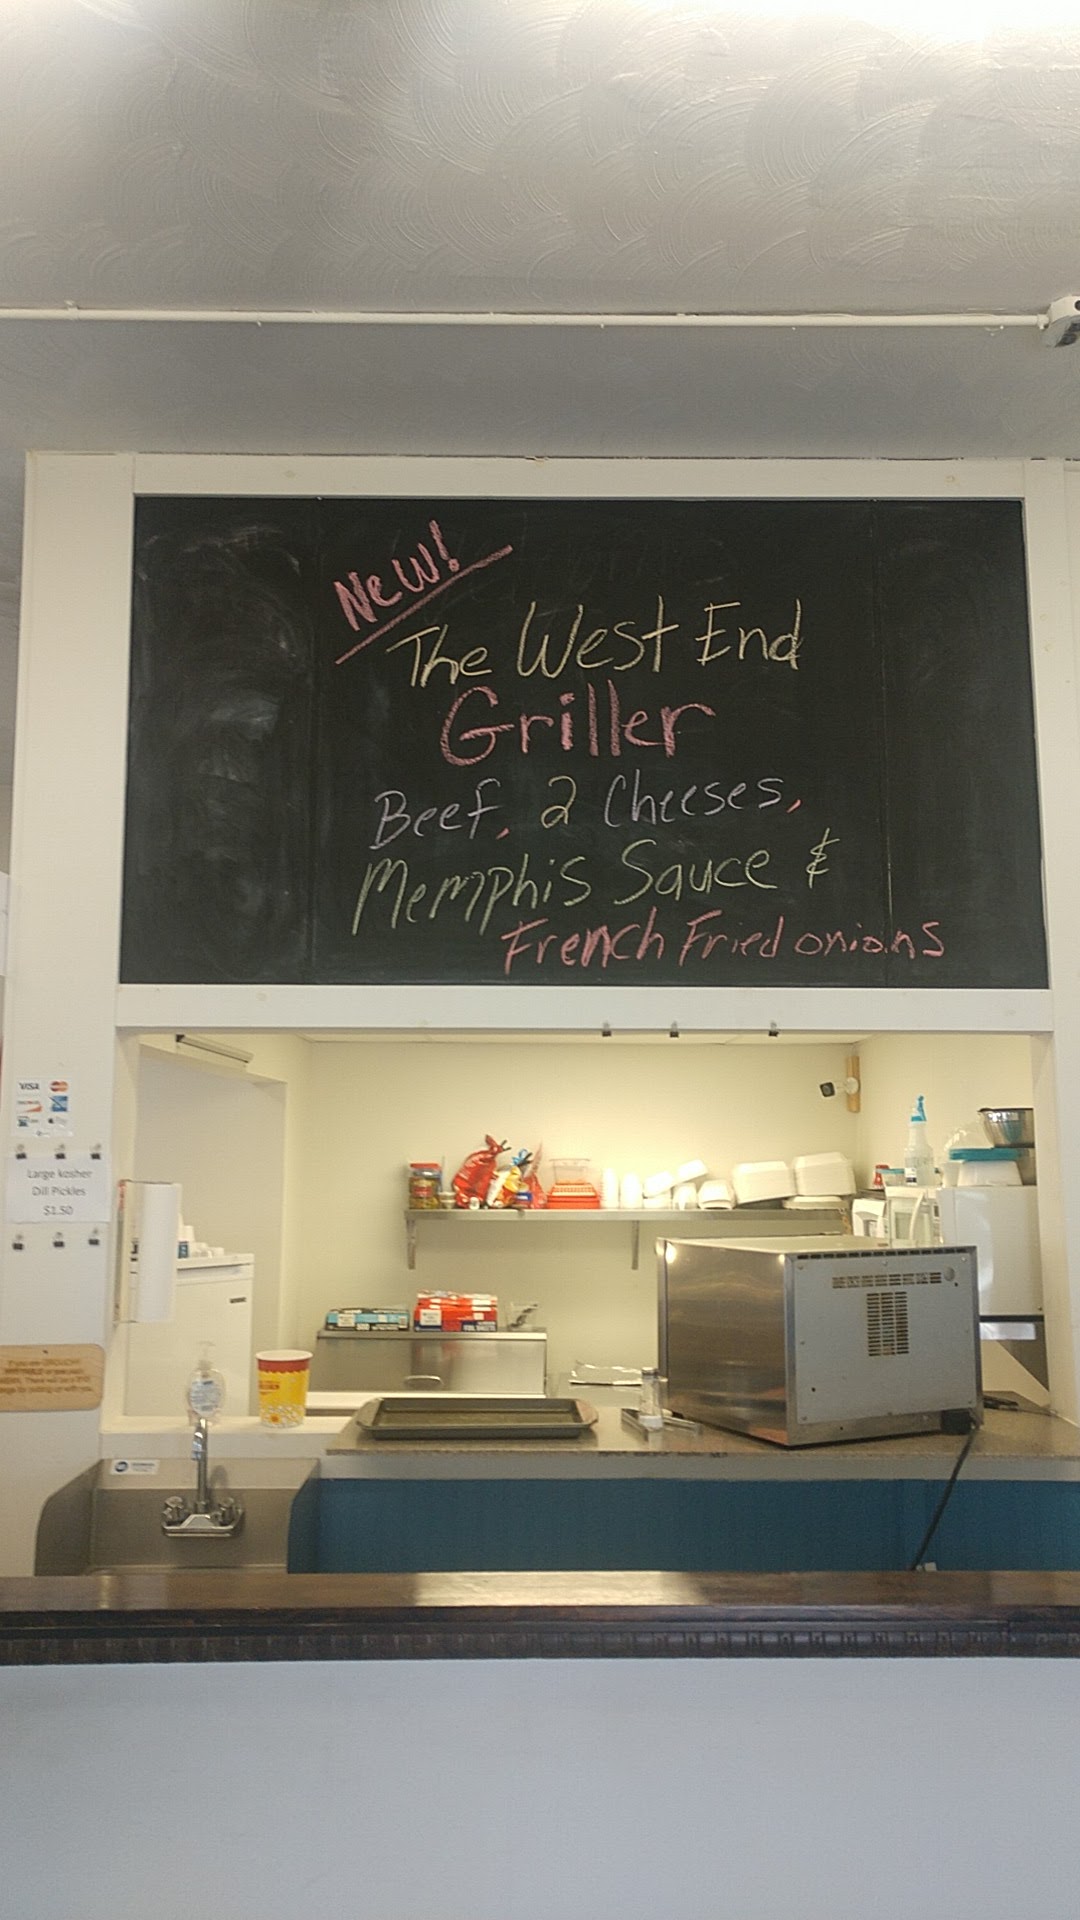 New!
The West End
Griller
Beef, 2 Cheeses,
Memphis Sauce &
French Fried onions
VISA
Large kosher
Dill Pickles
$1.50